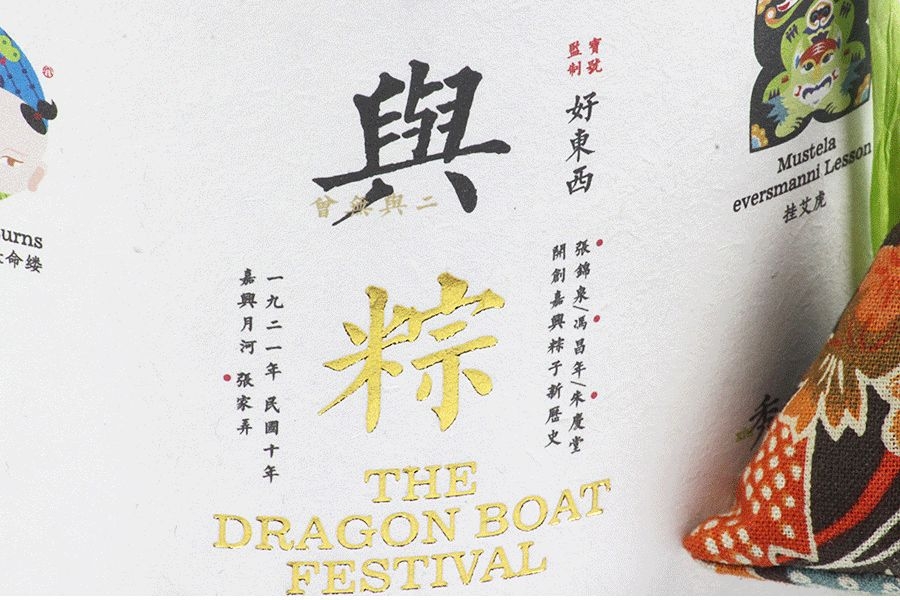 寶號
監制
好東西
與
曾無與二
張錦泉/馮昌年/朱慶堂
開創嘉興粽子新歷史
粽
一九二一年民國十年
嘉興月河 張家弄
THE
DRAGON BOAT
FESTIVAL
Mustela
eversmanni Lesson
挂艾虎
urns
命缕